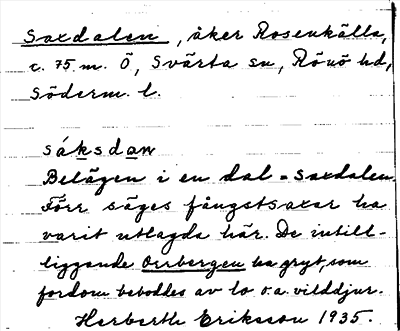 Saxdalen, åker Rosenkälla,
c. 75 m. Ö, Svärta sn, Rönö hd,
Söderm. l.
sáksdan
Belägen i en dal = Saxdalen.
Förr säges fångstsaxar ha
varit utlagda här. De intill-
liggande Orrbergen ha gryt, som
fordom beboddes av lo o.a. vilddjur.
Herberth Eriksson 1935.